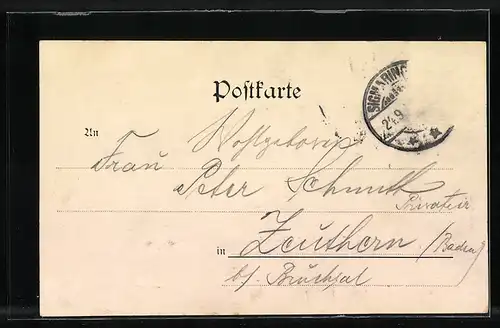 Postkarte
SIGMARING
24.9
An Wohlgeboren
Frau
Peter Schmitt
Privatier
in Zeuthern (Baden)
b/. Bruchsal